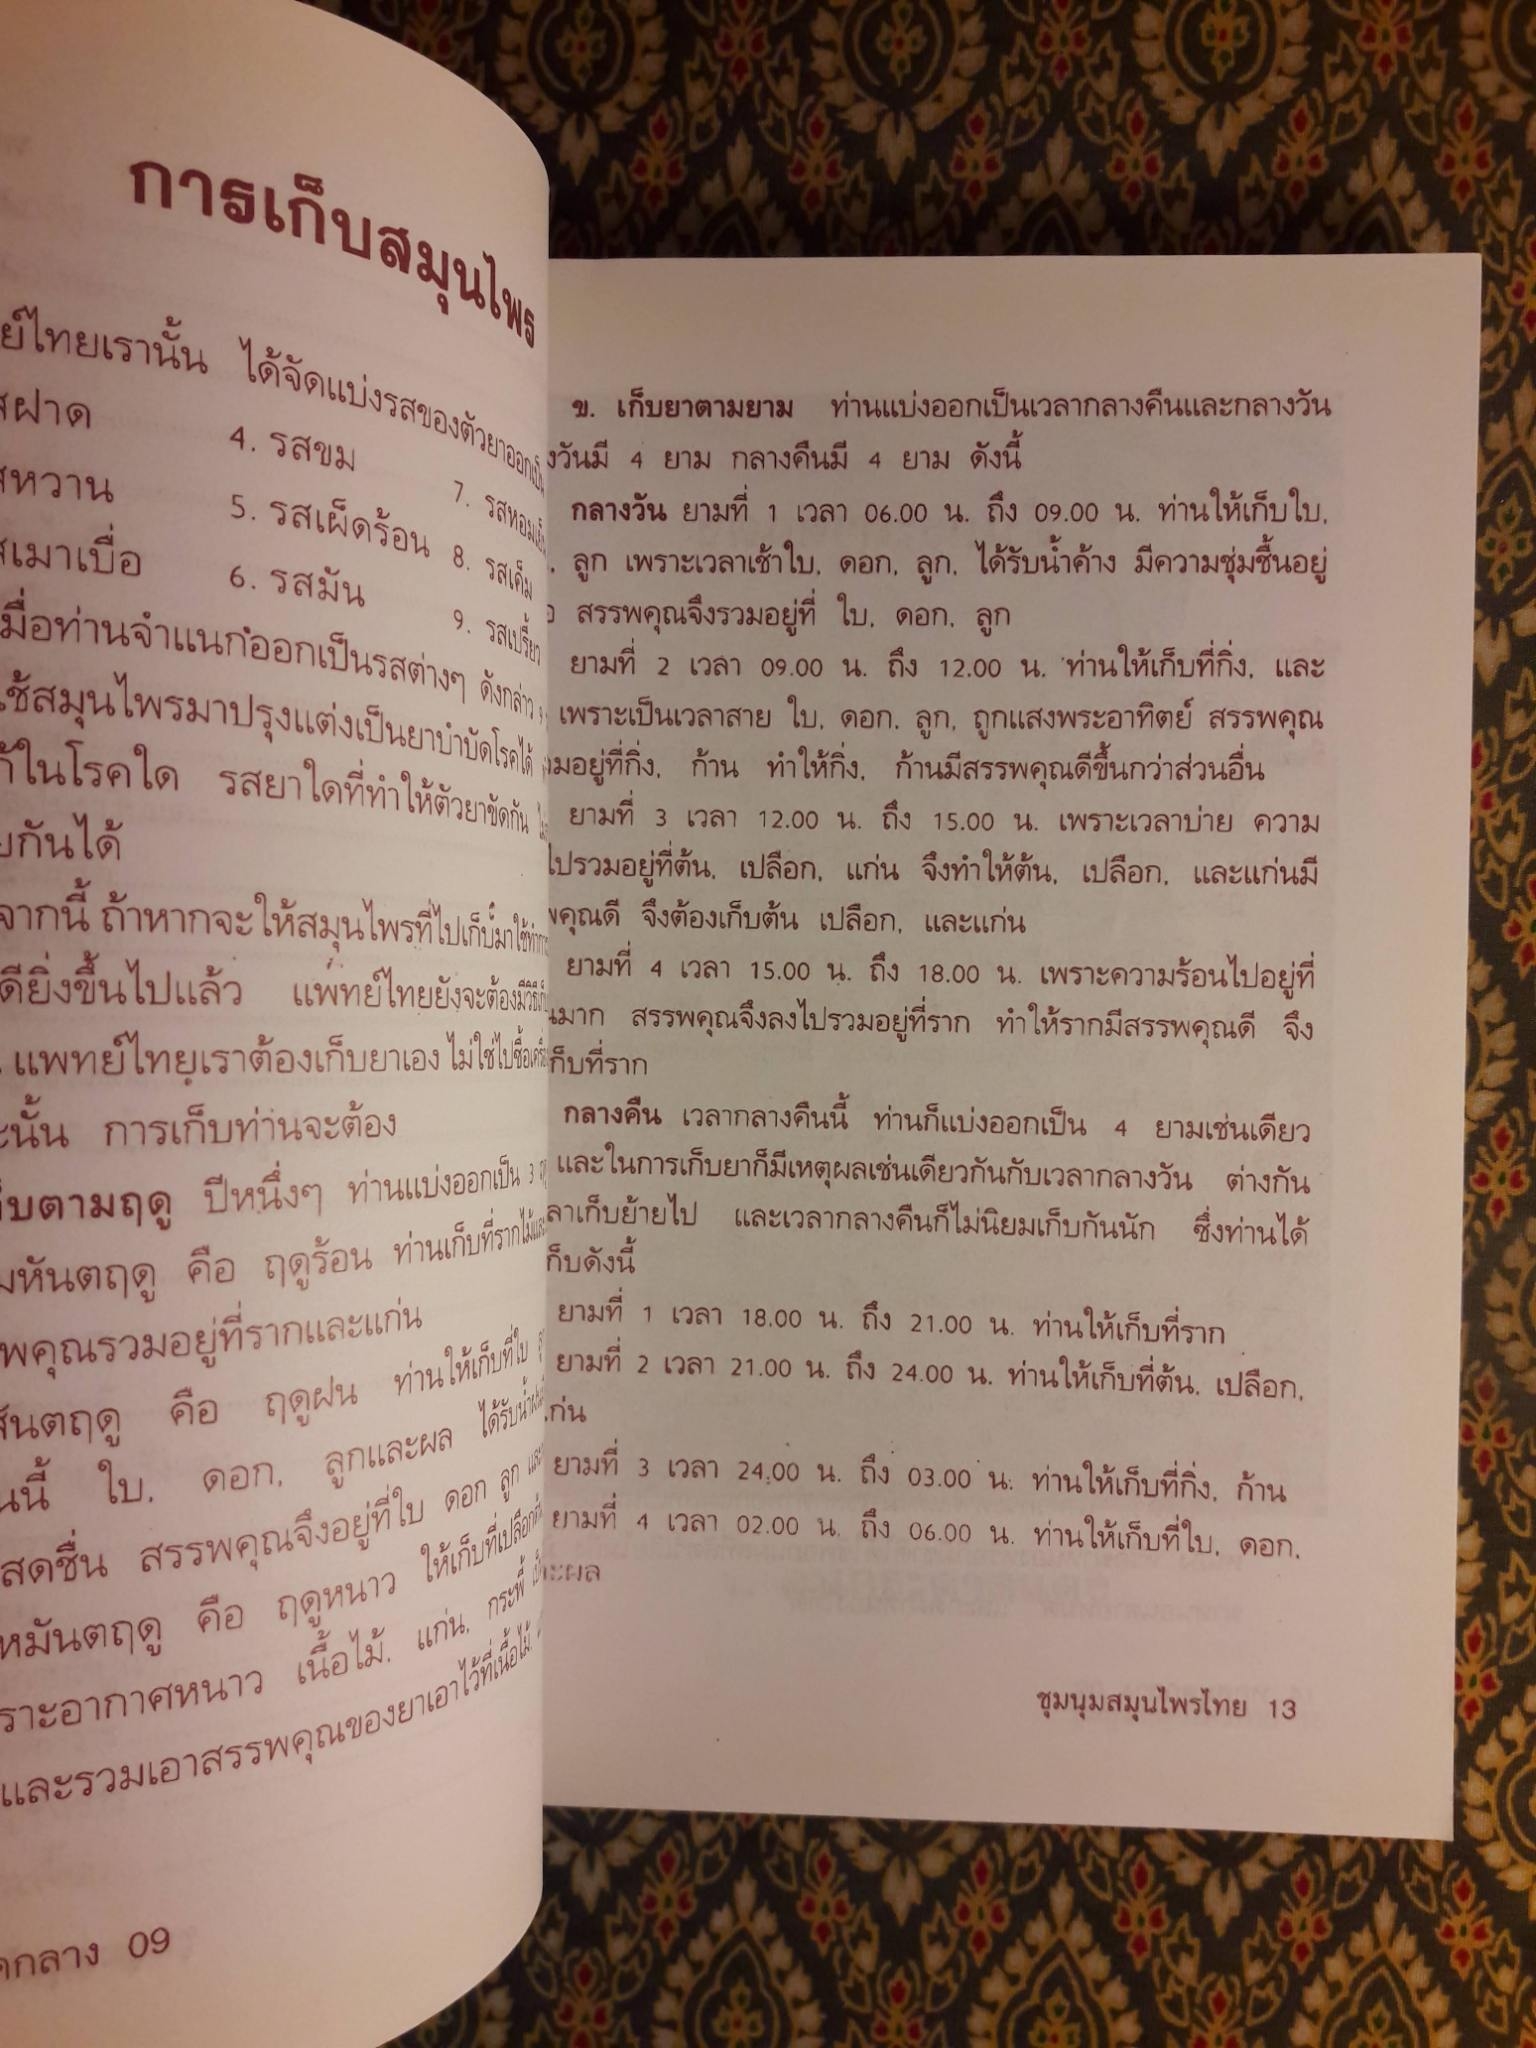 การเก็บสมุนไพร
ไทยเรานั้น ได้จัดแบ่งรสของตัวยาออกเป็น
ฝาด 4. รสขม 7. รสหอมเย็น
หวาน 5. รสเผ็ดร้อน 8. รสเค็ม
เมาเบื่อ 6. รสมัน 9. รสเปรี้ยว
มื่อท่านจำแนกออกเป็นรสต่างๆ ดังกล่าว
ช้สมุนไพรมาปรุงแต่งเป็นยาบำบัดโรคได้
ก้ในโรคใด รสยาใดที่ทำให้ตัวยาขัดกัน
กันได้
จากนี้ ถ้าหากจะให้สมุนไพรที่ไปเก็บมาใช้ทำ
ดียิ่งขึ้นไปแล้ว แพทย์ไทยยังจะต้องมีวิธี
แพทย์ไทยเราต้องเก็บยาเอง ไม่ใช่ไปซื้อ
ะนั้น การเก็บท่านจะต้อง
บตามฤดู ปีหนึ่งๆ ท่านแบ่งออกเป็น 3
มหันตฤดู คือ ฤดูร้อน ท่านเก็บที่รากไม้และ
พคุณรวมอยู่ที่รากและแก่น
สันตฤดู คือ ฤดูฝน ท่านให้เก็บที่ใบ
นนี้ ใบ, ดอก, ลูกและผล ได้รับน้ำฝน
สดชื่น สรรพคุณจึงอยู่ที่ใบ ดอก ลูก และ
หมันตฤดู คือ ฤดูหนาว ให้เก็บที่เปลือก
ราะอากาศหนาว เนื้อไม้, แก่น, กระพี้
และรวมเอาสรรพคุณของยาเอาไว้ที่เนื้อไม้,
กลาง 09
ข. เก็บยาตามยาม ท่านแบ่งออกเป็นเวลากลางคืนและกลางวัน
งวันมี 4 ยาม กลางคืนมี 4 ยาม ดังนี้
กลางวัน ยามที่ 1 เวลา 06.00 น. ถึง 09.00 น. ท่านให้เก็บใบ,
, ลูก เพราะเวลาเช้าใบ, ดอก, ลูก, ได้รับน้ำค้าง มีความชุ่มชื้นอยู่
อ สรรพคุณจึงรวมอยู่ที่ ใบ, ดอก, ลูก
ยามที่ 2 เวลา 09.00 น. ถึง 12.00 น. ท่านให้เก็บที่กิ่ง, และ
เพราะเป็นเวลาสาย ใบ, ดอก, ลูก, ถูกแสงพระอาทิตย์ สรรพคุณ
วมอยู่ที่กิ่ง, ก้าน ทำให้กิ่ง, ก้านมีสรรพคุณดีขึ้นกว่าส่วนอื่น
ยามที่ 3 เวลา 12.00 น. ถึง 15.00 น. เพราะเวลาบ่าย ความ
ไปรวมอยู่ที่ต้น, เปลือก, แก่น จึงทำให้ต้น, เปลือก, และแก่นมี
พคุณดี จึงต้องเก็บต้น เปลือก, และแก่น
ยามที่ 4 เวลา 15.00 น. ถึง 18.00 น. เพราะความร้อนไปอยู่ที่
นมาก สรรพคุณจึงลงไปรวมอยู่ที่ราก ทำให้รากมีสรรพคุณดี จึง
ก็บที่ราก
กลางคืน เวลากลางคืนนี้ ท่านก็แบ่งออกเป็น 4 ยามเช่นเดียว
และในการเก็บยาก็มีเหตุผลเช่นเดียวกันกับเวลากลางวัน ต่างกัน
ลาเก็บย้ายไป และเวลากลางคืนก็ไม่นิยมเก็บกันนัก ซึ่งท่านได้
ก็บดังนี้
ยามที่ 1 เวลา 18.00 น. ถึง 21.00 น. ท่านให้เก็บที่ราก
ยามที่ 2 เวลา 21.00 น. ถึง 24.00 น. ท่านให้เก็บที่ต้น, เปลือก,
ก่น
ยามที่ 3 เวลา 24.00 น. ถึง 03.00 น. ท่านให้เก็บที่กิ่ง, ก้าน
ยามที่ 4 เวลา 02.00 น. ถึง 06.00 น. ท่านให้เก็บที่ใบ, ดอก,
ะผล
ชุมนุมสมุนไพรไทย 13